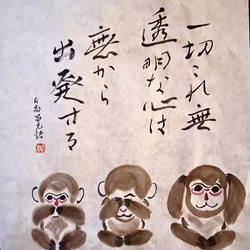 一切これ無
透明な心は
無から
出発する